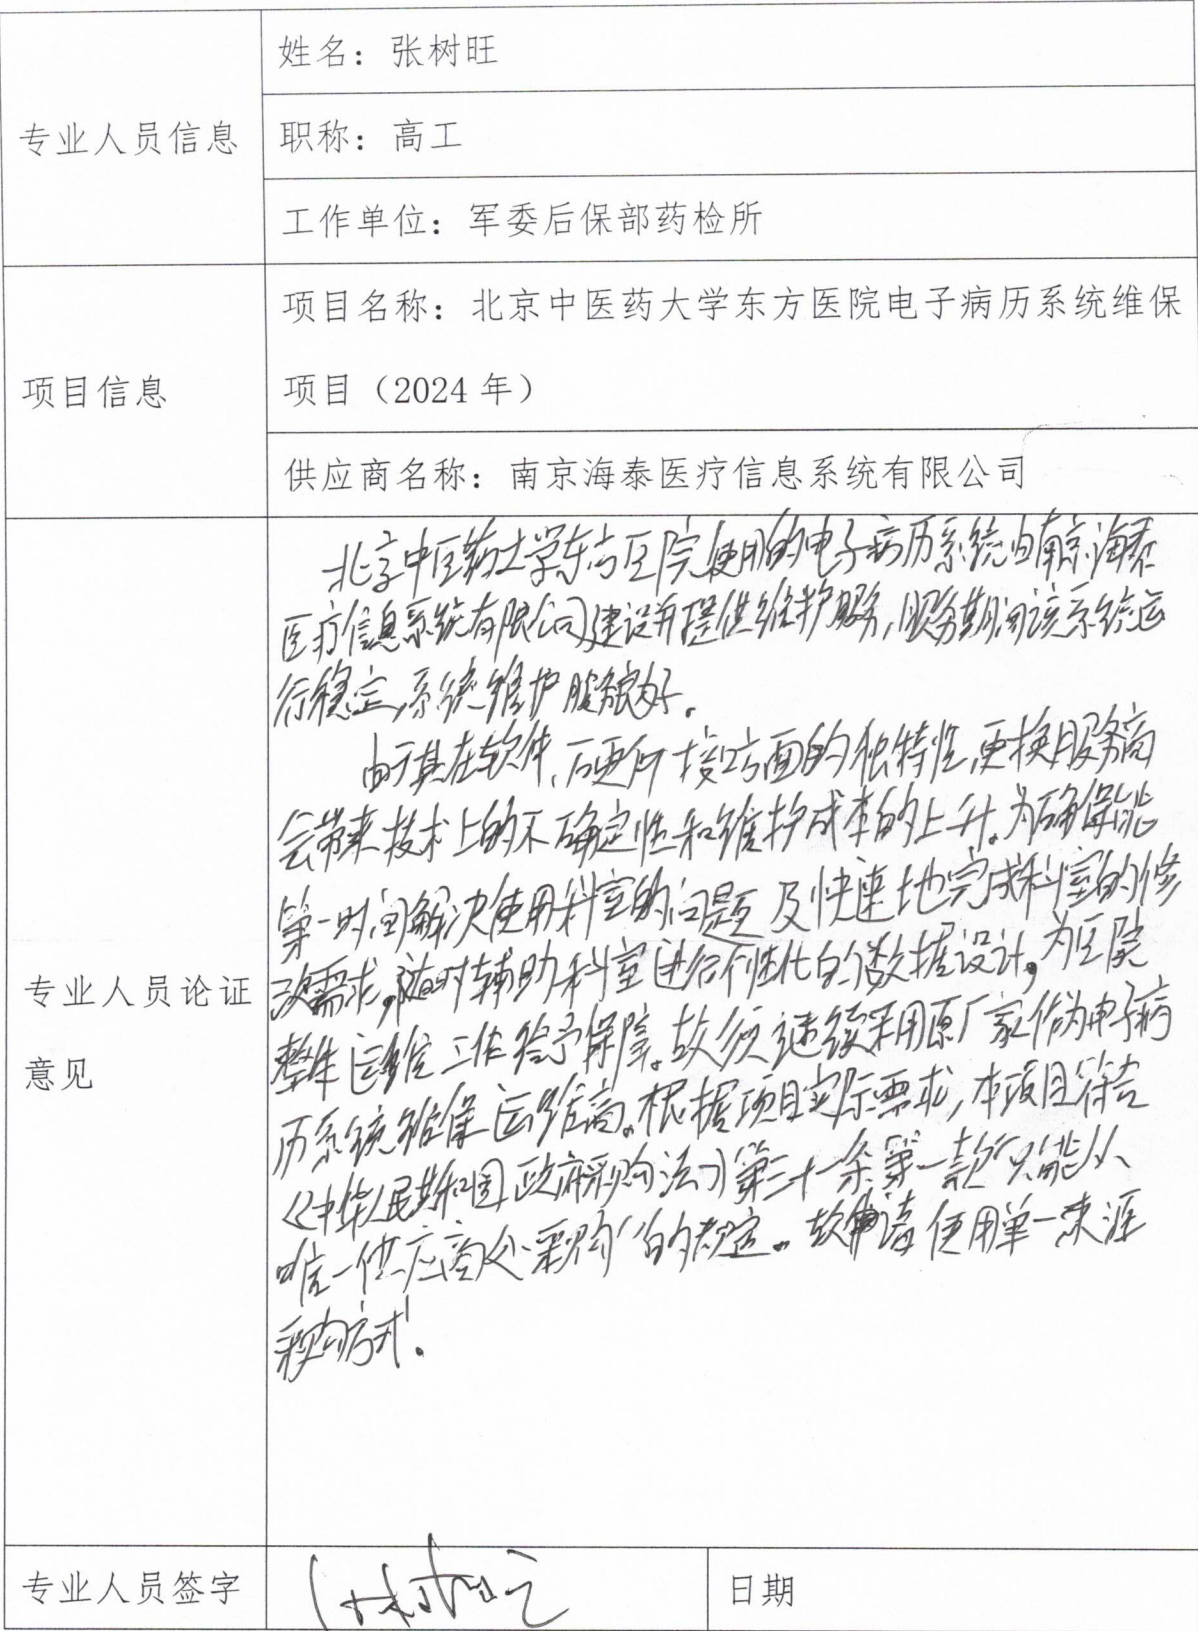 姓名：张树旺
专业人员信息
职称：高工
工作单位：军委后保部药检所
项目名称：北京中医药大学东方医院电子病历系统维保
项目信息
项目（2024 年）
供应商名称：南京海泰医疗信息系统有限公司
北京中医药大学东方医院使用的电子病历系统由南京海泰
医疗信息系统有限公司建设并提供维护服务，服务期间该系统运
行稳定，系统维护服务良好。
由于其在软件、硬件接口方面的独特性，更换服务商
会带来技术上的不确定性和维护成本的上升。为确保能
第一时间解决使用科室的问题及快速地完成科室的修
改需求，随时辅助科室进行个性化的数据设计，为医院
整体运维工作给予保障。故须继续采用原厂家作为电子病
历系统维保运维商。根据项目实际要求，本项目符合
《中华人民共和国政府采购法》第三十一条第一款“只能从
唯一供应商处采购”的规定。故申请使用单一来源
采购方式。
专业人员论证
意见
专业人员签字
张树旺
日期